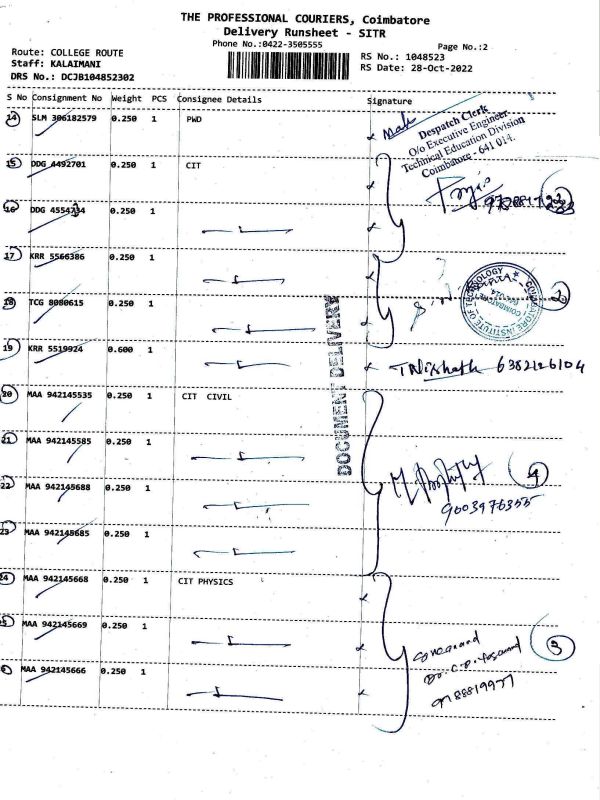 THE PROFESSIONAL COURIERS, Coimbatore
Delivery Runsheet - SITR
Phone No.:0422-3505555
Page No.:2
Route: COLLEGE ROUTE
Staff: KALAIMANI
DRS No.: DCJB104852302
RS No.: 1048523
RS Date: 28-Oct-2022
S No Consignment No Weight PCS Consignee Details Signature
14 SLM 306182579 0.250 1 PWD
Despatch Clerk
O/o Executive Engineer
Technical Education Division
Coimbatore - 641 014.
15 DDG 4492701 0.250 1 CIT
16 DDG 4554734 0.250 1
17 KRR 5566386 0.250 1
18 TCG 8080615 0.250 1
COIMBATORE INSTITUTE OF TECHNOLOGY
2
19 KRR 5519924 0.600 1
6382126104
DOCUMENT DELIVERY
20 MAA 942145535 0.250 1 CIT CIVIL
21 MAA 942145585 0.250 1
22 MAA 942145688 0.250 1
4
9003976355
23 MAA 942145685 0.250 1
24 MAA 942145668 0.250 1 CIT PHYSICS
5 MAA 942145669 0.250 1
3
6 MAA 942145666 0.250 1